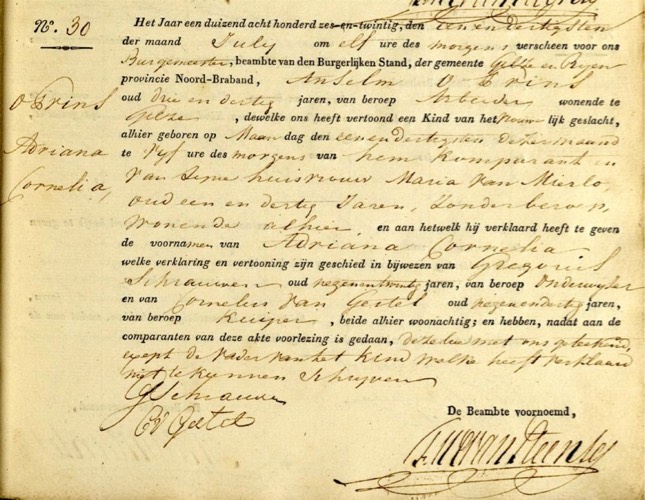 N.º 30
o Prins
Adriana
Cornelia,
Het Jaar een duizend acht honderd zes-en-twintig, den eenendertigsten
der maand July om elf ure des morgens verscheen voor ons
Burgemeester, beambte van den Burgerlijken Stand, der gemeente Gilze en Reyen
provincie Noord-Braband, Anselm o Prins
oud drie en dertig jaren, van beroep Arbeider wonende te
Gilze, dewelke ons heeft vertoond een Kind van het vrouwlijk geslacht,
alhier geboren op Maandag den eenendertigsten dezer maand
te vyf ure des morgens van hem komparant en
van zyne huisvrouw Maria van Mierlo,
oud een en dertig Jaren, Zonder beroep,
wonende alhier, en aan hetwelk hij verklaard heeft te geven
de voornamen van Adriana Cornelia
welke verklaring en vertooning zijn geschied in bijwezen van Gregorius
Schrauwen oud negenentwintig jaren, van beroep Onderwyser
en van Cornelis van Gestel oud negenendertig jaren,
van beroep kuiper, beide alhier woonachtig; en hebben, nadat aan de
comparanten van deze akte voorlezing is gedaan, dezelve met ons geteekend,
exept de vader van het kind welke heeft verklaard
niet te kunnen schryven
G Schrauwen
C V Gestel
De Beambte voornoemd,